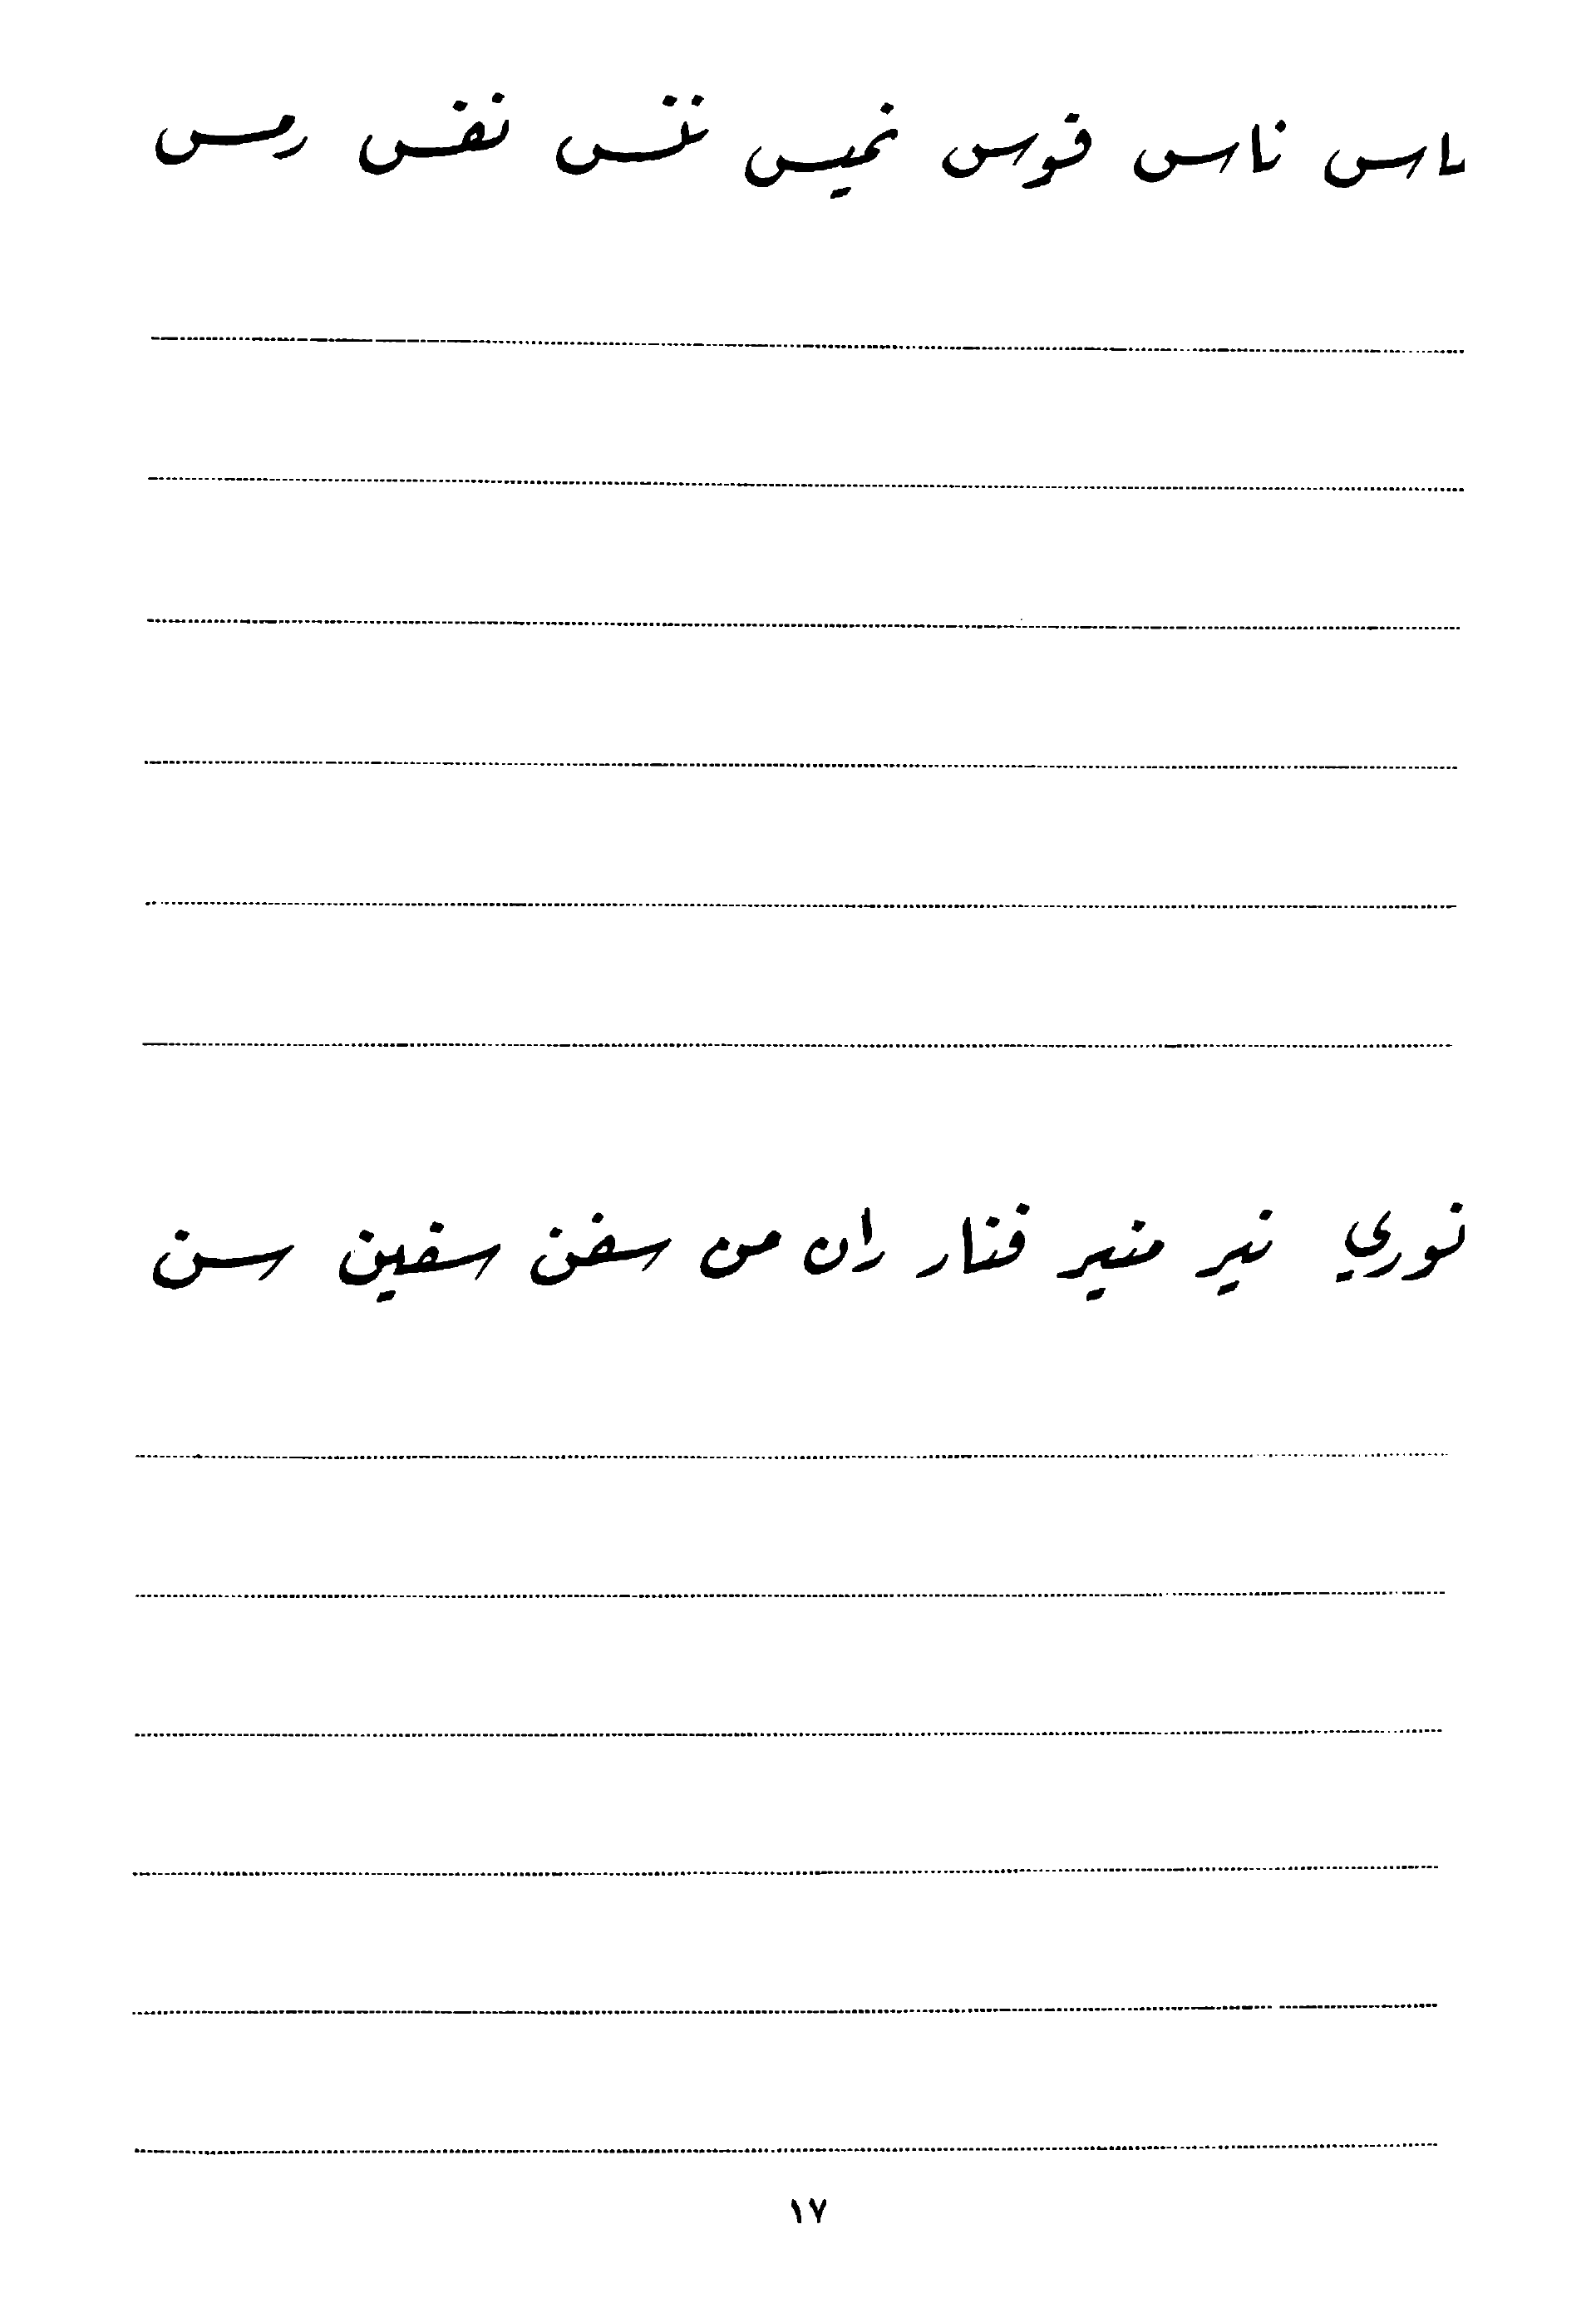 ناس قوس نميس نفس رمس
نوري نير منير فنار ران من سفن سفين سن
١٧